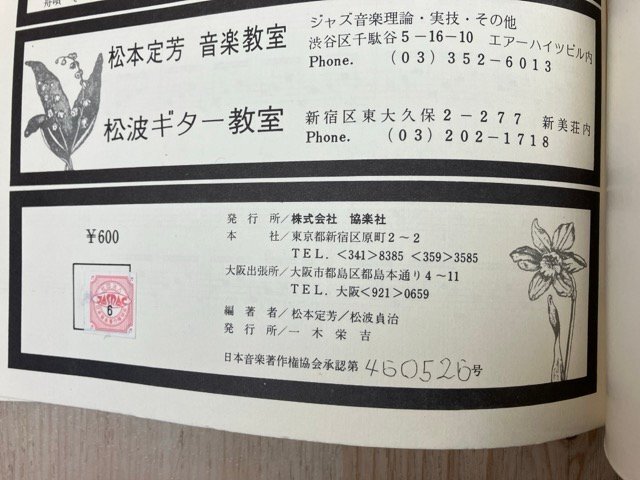 ジャズ音楽理論・実技・その他
松本定芳 音楽教室
渋谷区千駄谷5-16-10 エアーハイツビル内
Phone. (03)352-6013
松波ギター教室
新宿区東大久保2-277 新美荘内
Phone. (03)202-1718
¥600
6
発行所/株式会社 協楽社
本社/東京都新宿区原町2~2
TEL.<341>8385 <359>3585
大阪出張所/大阪市都島区都島本通り4~11
TEL.大阪<921>0659
編著者/松本定芳/松波貞治
発行所/一木栄吉
日本音楽著作権協会承認第460526号